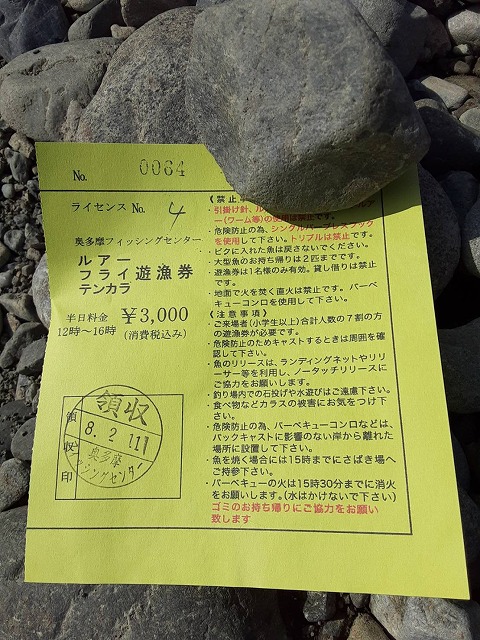 No. 0064
ライセンス No. 4
奥多摩フィッシングセンター
ルアー
フライ遊漁券
テンカラ
半日料金 ¥3,000
12時〜16時 (消費税込み)
領収印
領収
8. 2. 11
奥多摩
フィッシングセンター
《禁止
・引掛け針、
ー(ワーム等)の使用は禁止です。
・危険防止の為、シングルバーブレスフック
を使用して下さい。トリプルは禁止です。
・ビクに入れた魚は戻さないでください。
・大型魚のお持ち帰りは2匹までです。
・遊漁券は1名様のみ有効。貸し借りは禁止
です。
・地面で火を焚く直火は禁止です。バーベ
キューコンロを使用して下さい。
《注意事項》
・ご来場者(小学生以上)合計人数の7割の方
の遊漁券が必要です。
・危険防止のためキャストするときは周囲を確
認して下さい。
・魚のリリースは、ランディングネットやリリ
ーサー等を利用し、ノータッチリリースに
ご協力をお願いします。
・釣り場内での石投げや水遊びはご遠慮下さい。
・食べ物などカラスの被害にお気をつけ下
さい。
・危険防止の為、バーベキューコンロなどは、
バックキャストに影響のない岸から離れた
場所に設置して下さい。
・魚を焼く場合には15時までにさばき場へ
ご持参下さい。
・バーベキューの火は15時30分までに消火
をお願いします。(水はかけないで下さい)
ゴミのお持ち帰りにご協力をお願い
致します